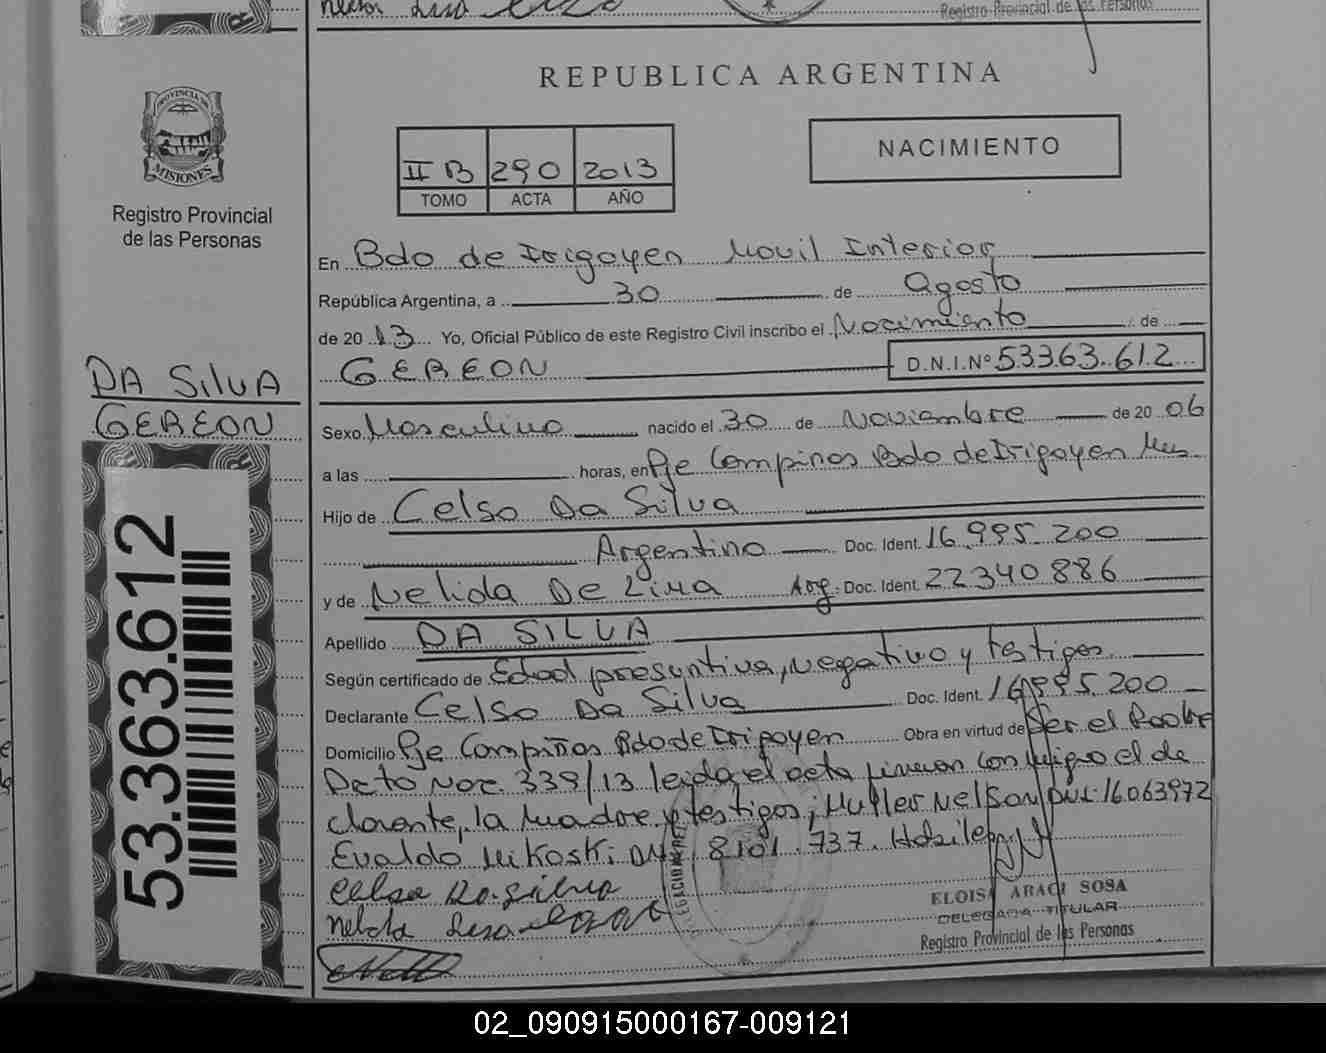 Registro Provincial de las Personas
REPUBLICA ARGENTINA
PROVINCIA DE
MISIONES
Registro Provincial
de las Personas
II B 290 2013
TOMO ACTA AÑO
NACIMIENTO
En Bdo de Irigoyen Movil Interior
República Argentina, a 30 de Agosto
de 2013 Yo, Oficial Público de este Registro Civil inscribo el Nacimiento de
GEREON D.N.I.Nº 53363.612
DA SILVA
GEREON
53.363.612
Sexo Masculino nacido el 30 de Noviembre de 2006
a las horas, en Pje Campiñas Bdo de Irigoyen Mns
Hijo de Celso Da Silva
Argentino Doc. Ident. 16.995.200
y de Nelida De Lima Arg. Doc. Ident. 22340886
Apellido DA SILVA
Según certificado de Edad presuntiva, negativo y testigos
Declarante Celso Da Silva Doc. Ident. 16995.200
Domicilio Pje Campiñas Bdo de Irigoyen Obra en virtud de Ser el Padre
Dcto Nac. 339/13 leida el acta firman conmigo el de
clarante, la madre y testigos, Muller Nelson DNI 16.063972
Evaldo Mikoski DNI 8.101.737.
Celso Da Silva
ELOISA ARACI SOSA
DELEGADA TITULAR
Registro Provincial de las Personas
02_090915000167-009121